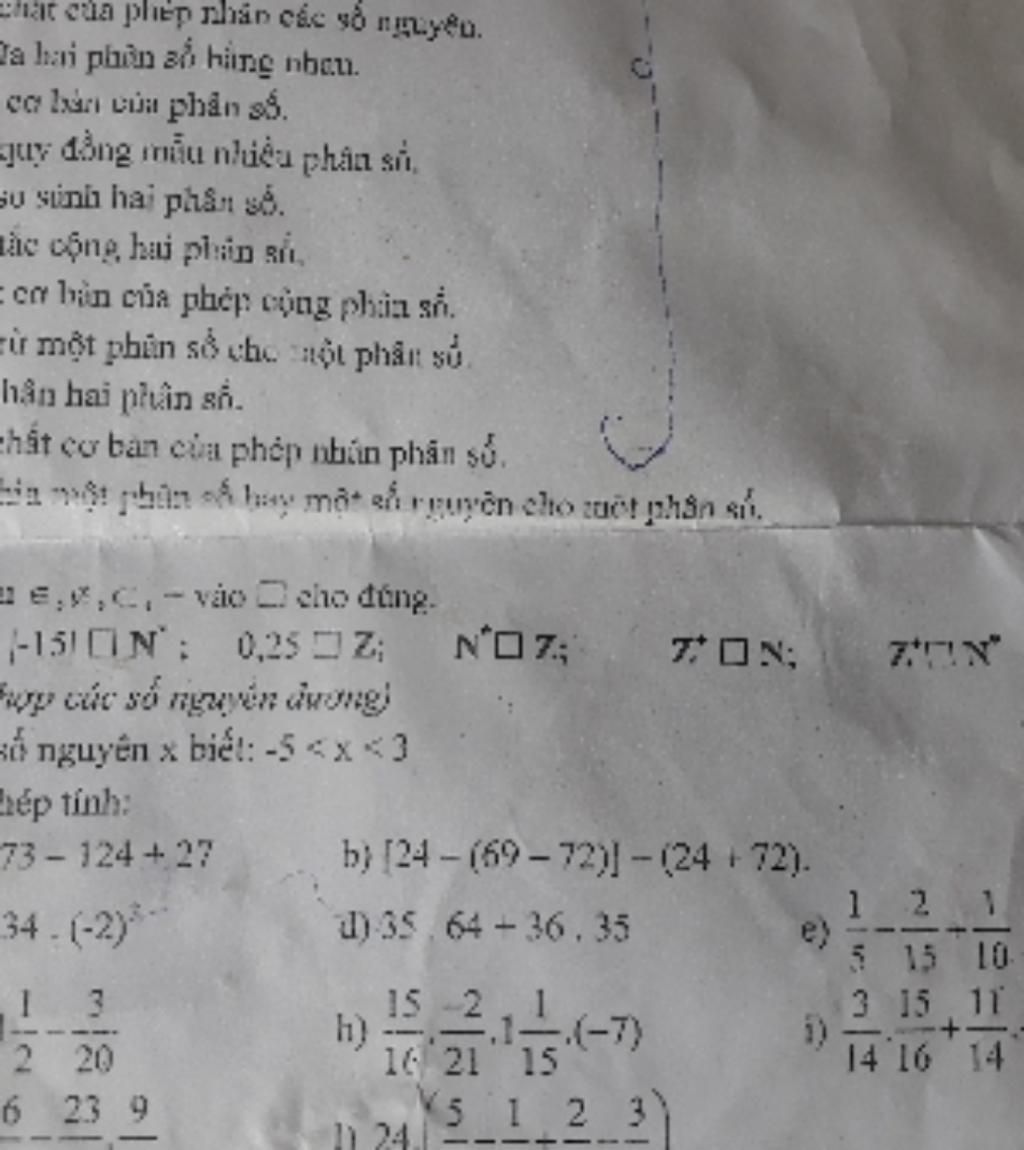 chất của phép nhân các số nguyên.
hai phân số bằng nhau.
cơ bản của phân số.
quy đồng mẫu nhiều phân số.
so sánh hai phân số.
tắc cộng hai phân số.
cơ bản của phép cộng phân số.
trừ một phân số cho một phân số.
nhân hai phân số.
chất cơ bản của phép nhân phân số.
chia một phân số hay một số nguyên cho một phân số.
∈, ∉, ⊂, = vào □ cho đúng.
|-15| □ N* ; 0,25 □ Z; N* □ Z; Z⁺ □ N; Z⁺ □ N*
hợp các số nguyên dương)
số nguyên x biết: -5 < x < 3
phép tính:
73 – 124 + 27 b) [24 – (69 – 72)] – (24 + 72).
34 . (-2)³ d) 35 . 64 + 36 . 35 e) 1/5 - 2/15 + 1/10
1/2 - 3/20 h) 15/16 . -2/21 . 1 1/15 . (-7) i) 3/14 . 15/16 + 11/14 .
6 - 23 . 9 l) 24. ( 5 - 1 + 2 - 3 )